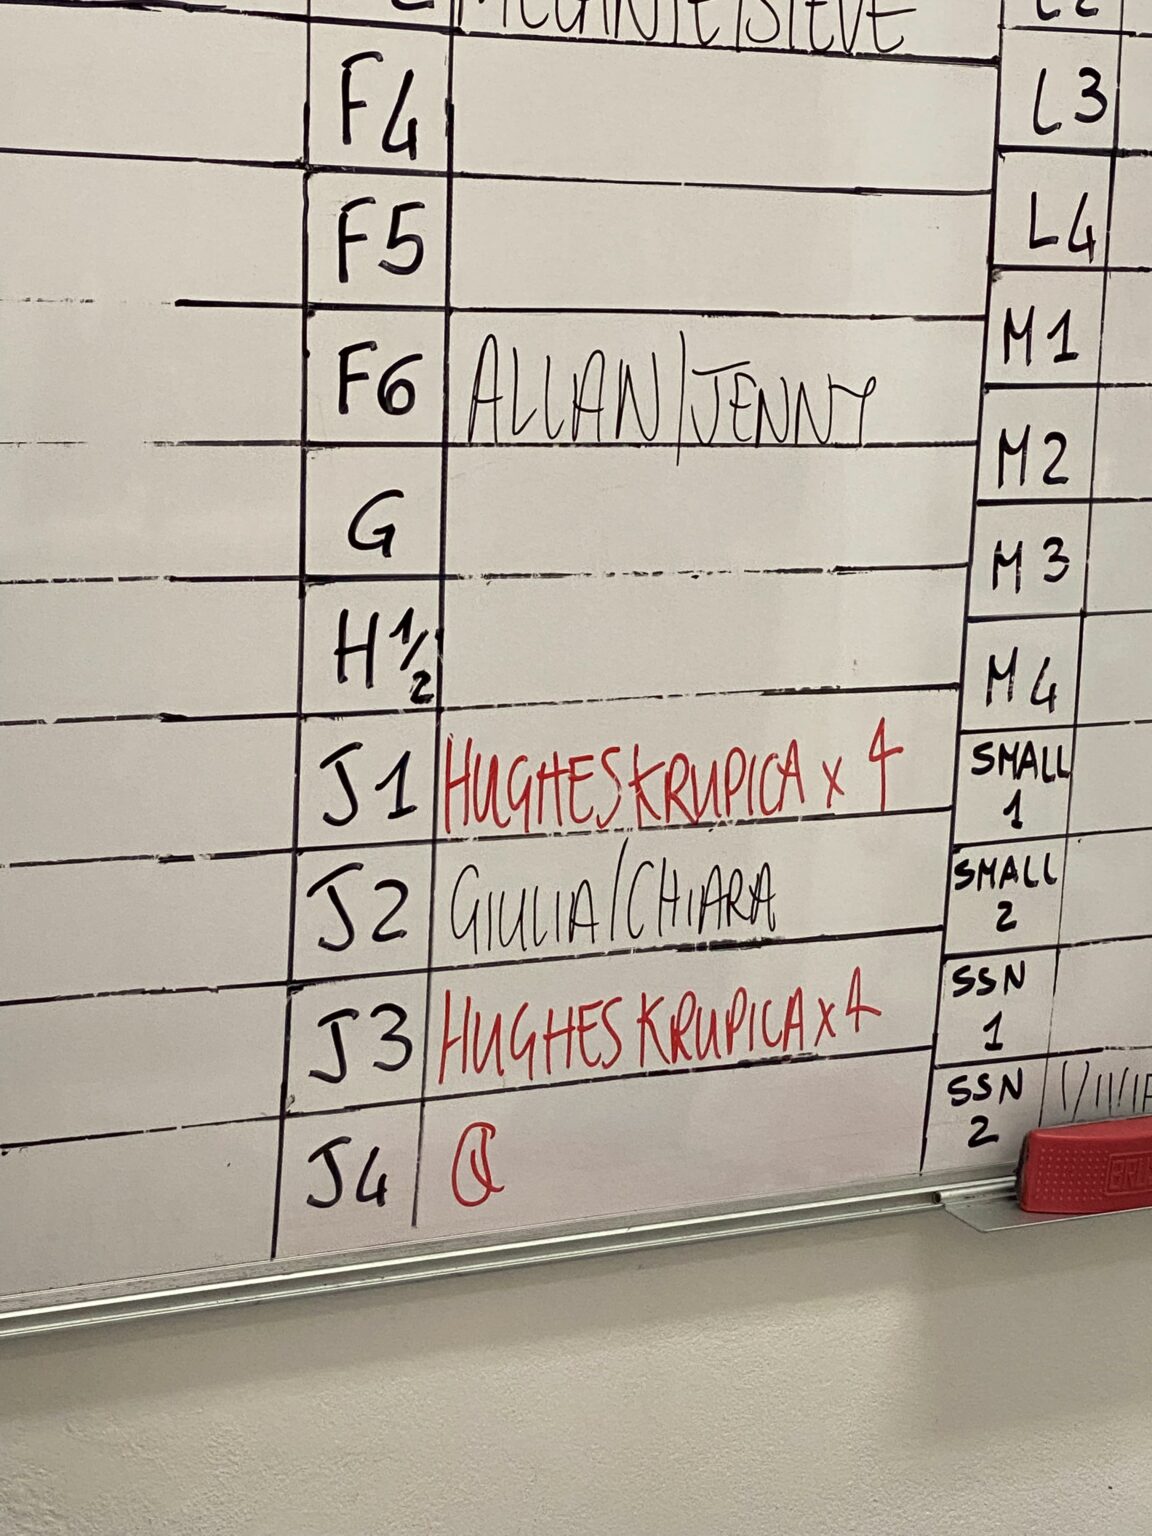 F4
F5
F6 ALLAN/JENNY
G
H 1/2
J1 HUGHESKRUPICA x 4
J2 GIULIA/CHIARA
J3 HUGHES KRUPICA x 4
J4
L3
L4
M1
M2
M3
M4
SMALL
1
SMALL
2
SSN
1
SSN
2